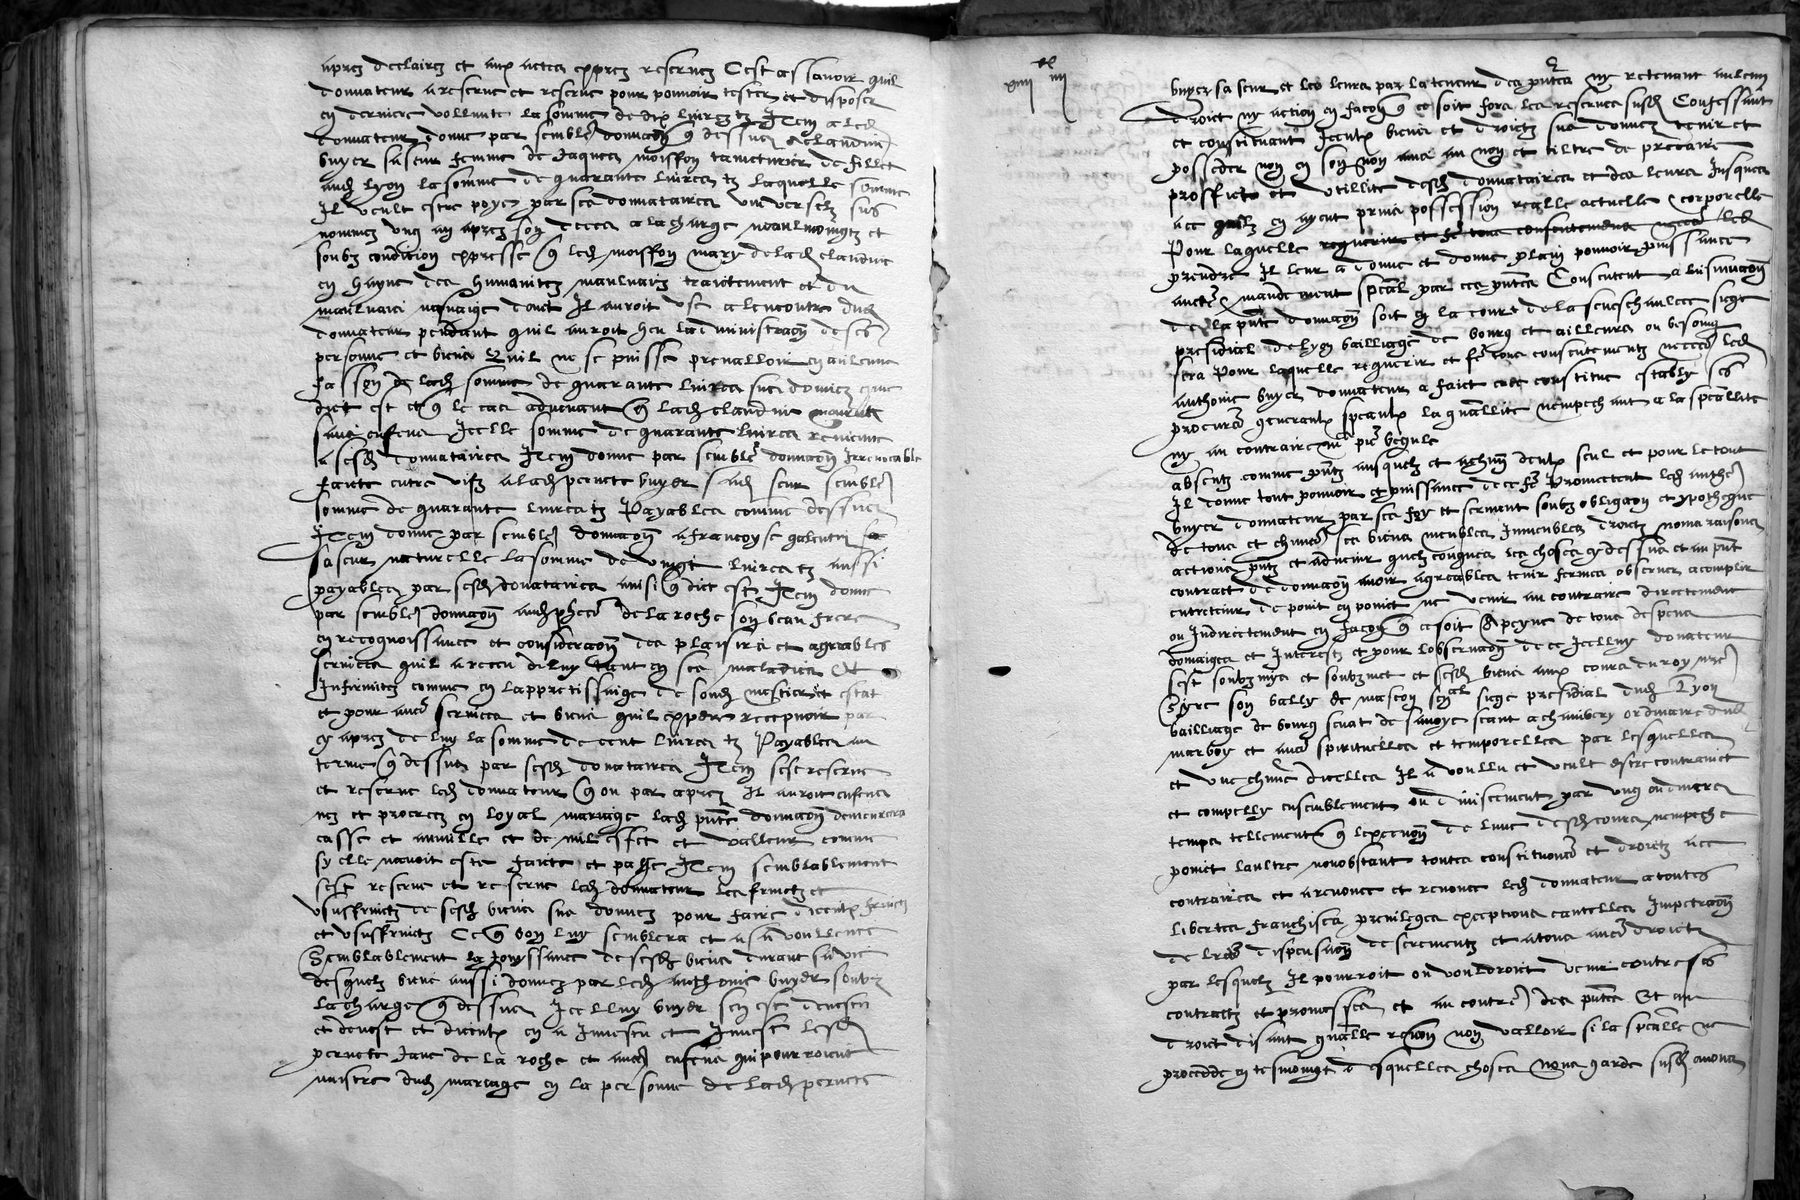 apres declairez et aux actes expres reservez Cest assavoir quil
donnateur a reserve et reserve pour pouvoir tester et disposer
en derniere vollunte la somme de dix livres tz Item a led
donnateur donne par sembl donnaon q dessus a claudine
buyer sa seur femme de Jaques moisson tainturier de fillet
aud lyon la somme de quarante livres tz laquelle somme
Il veult estre poyee par ses donnataires universelz sus
nommez ung an apres son deces a la charge neaulmoingtz et
soubz condicion expresse q led moisson mary de lad claudine
en hayne des humanitez maulvais traictement et du
maulvais mesnaige dont Il auroit use a lencontre dud
donnateur pendant quil auroit heu ladministraon de ses
personne et biens Quil ne se puisse prevalloir en aulcune
fasson de lad somme de quarante livres sus donnez que
dict est et q le cas advenant q lad claudine mourut
sans enfens Icelle somme de quarante livres revienne
a sesd donnataires Item donne par sembl donnaon Irrevocable
faicte entre vifz a lad pernete buyer sad seur sembl
somme de quarante livres tz Payables comme dessus
Item donne par sembl donnaon a francoyse galentin sa
sa seur naturelle la somme de vingt livres tz aussi
payables par sesd donataires ainsi q dict est Item donne
par sembl donnaon aud de la roche son beau frere
en recognoissance et consideraon des plaisirs et agreables
services quil a receu de luy tant en ses maladies Et
Infirmitez comme en lappretissaige de sond mestier et estat
et pour aues services et biens quil espere recepvoir par
cy apres de luy la somme de cent livres tz Payables au
terme q dessus par sesd donataires Item sest reserve
et reserve led donnateur q ou par apres Il auroit enfens
nez et procreez en loyal mariage lad pnte donnaon demeurera
casse et anulle et de nul effet et valleur comme
sy elle navoit este faicte et passe Item semblablement
sest reserve et reserve led donnateur les fruictz et
usuffruictz de sesd biens sus donnez pour faire diceulx fruictz
et usuffruictz Ce q bon luy semblera et a sa voulente
Semblablement la jouyssance de sesd biens durant sa vie
desquelz biens aussi donnez par led anthoine buyer soubz
la charge q dessus Icelluy buyer sen est devestu
et devest et diceulx en a Investu et Invest lesd
pernete Jane de la roche et aues enfens qui pourroient
naistre dud mariage en la personne de lad pernete
buyer sa seur et les leurs par la teneur des pntes ny retenant aulcun
droict ny action en facon q ce soit fors les reserves susd Confessant
et constituant Iceulx biens et droictz sus donnez tenir et
posseder non en son nom ains au nom et tiltre de precaire
prosfictz et utillite desd donnataires et des leurs Jusques
ace quilz en ayent prins possession realle actuelle corporelle
Pour laquelle requerir et fe tous consentemens necess led
prendre Il leur a donne et donne plain pouvoir puissance
aucte mandement special par ces pntes Consentent a linsinuaon
de la pnte donnaon soit en la court de la seneschaulcee siege
presidial de lyon bailliage de bourg et ailleurs ou besoing
sera Pour laquelle requerir et fe tous consentementz necess led
anthoine buyer donnateur a faict cree constitue estably ses
procures generaulx speaulx la quallite nempechant a la speallite
ny au contraire me pie begule
absentz comme pntz ausquelz et ung deulx seul et pour le tout
Il donne tout pouvoir et puissance de ce fe Promettent led anthe
buyer donnateur par ses foy et serment soubz obligaon et ypotheque
de tous et chuns ses biens meubles Inmeubles droictz noms raisons
actions pntz et advenir quelconques les choses q dessus et au pnt
contract de donnaon avoir agreables tenir fermes observer acomplir
entretenir de point en poinct ne venir au contraire directement
ou Indirectement en facon q ce soit A peyne de tous despens
domaiges et Interestz et pour lobservaon de ce Icelluy donateur
sest soubzmys et soubzmet et sesd biens aux cours du roy nre
Syre son bally de mascon senal siege presidial dud Lyon
bailliage de bourg senat de savoye seant a chambery ordinaire dud
marboz et aues spirituelles et temporelles par lesquelles
et une chune dicelles Il a voullu et veult estre contrainct
et compelly ensemblement ou divisement par ung ou divers
temps tellement q lexecuon de lune desd cours nempeche
poinct laultre nonobstant toutes constituons et droictz a ce
contraires et a renonce et renonce led donnateur a toutes
libertes franchises previleges exceptions cautelles Impetraon
de lres dispensaon de serementz et a tous aues droictz
par lesquelz Il pourroit ou vouldroit venir contre ses
contractz et promesses et au contre des pntes Et au
droict disant gnalle renon non valloir si la spealle ne
procedde en tesmoingt desquelles choses Nous garde susd avons